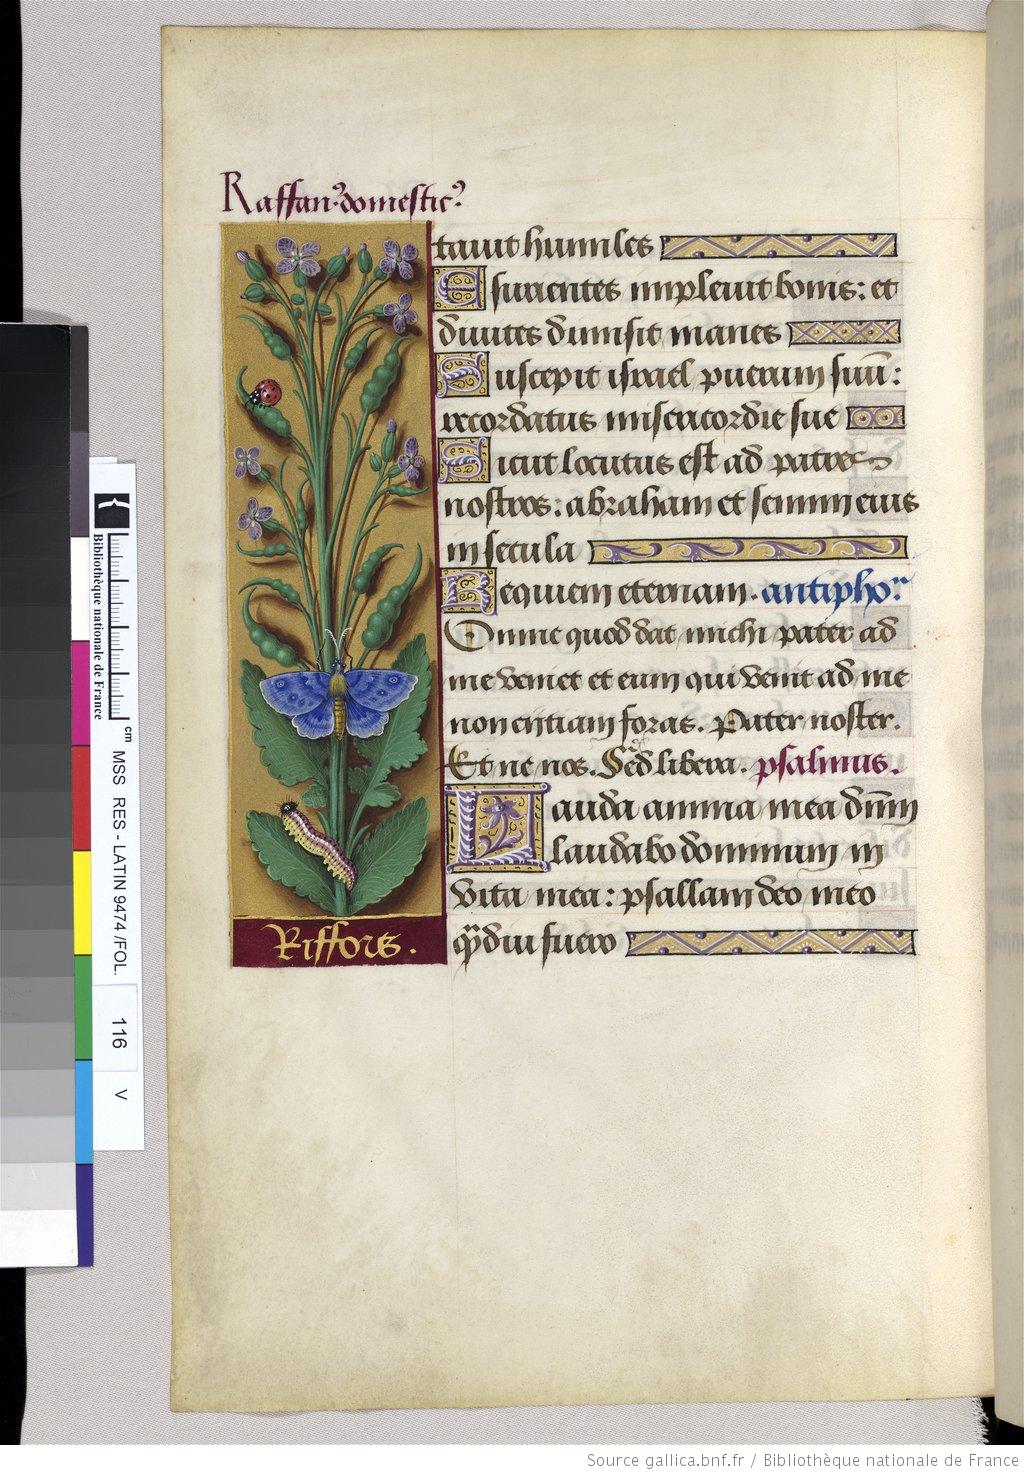 Raffanꝰ domesticꝰ
tavit humiles
Esurientes implevit bonis: et
divites dimisit inanes
Suscepit israel puerum suū:
recordatus misericordie sue
Sicut locutus est ad patres
nostros: abraham et semini eius
in secula
Requiem eternam. antipho.
Omne quod dat michi pater ad
me veniet et eum qui venit ad me
non eiiciam foras. Pater noster.
Et ne nos. Sed libera. psalmus.
Lauda anima mea dnm
laudabo dominum in
vita mea: psallam deo meo
qdiu fuero
Riffors.
Bibliothèque nationale de France
cm
MSS RES - LATIN 9474 /FOL.
116
V
Source gallica.bnf.fr / Bibliothèque nationale de France